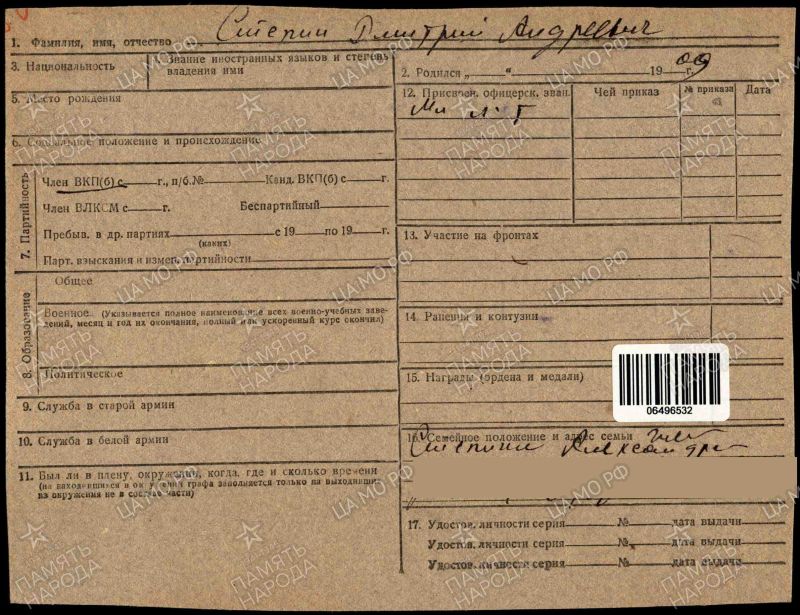 1. Фамилия, имя, отчество Стерин Дмитрий Андреевич
3. Национальность
4. Знание иностранных языков и степень владения ими
2. Родился „ “ 1909 г.
5. Место рождения
12. Присвоен. офицерск. зван. Чей приказ № приказа Дата
Мл л-т
6. Социальное положение и происхождение
7. Партийность
Член ВКП(б) с г., п/б.№ Канд. ВКП(б) с г.
Член ВЛКСМ с г. Беспартийный
Пребыв. в др. партиях с 19 по 19 г.
(каких)
Парт. взыскания и измен. партийности
13. Участие на фронтах
8. Образование
Общее
Военное (Указывается полное наименование всех военно-учебных заве-
дений, месяц и год их окончания, полный или ускоренный курс окончил)
14. Ранения и контузии
Политическое
15. Награды (ордена и медали)
06496532
9. Служба в старой армии
10. Служба в белой армии
16. Семейное положение и адрес семьи
11. Был ли в плену, окружении, когда, где и сколько времени
(на находившихся в окружении графа заполняется только на выходивших
из окружения не в составе части)
17. Удостов. личности серия № дата выдачи
Удостов. личности серия № дата выдачи
Удостов. личности серия № дата выдачи
ПАМЯТЬ НАРОДА
ЦАМО.РФ